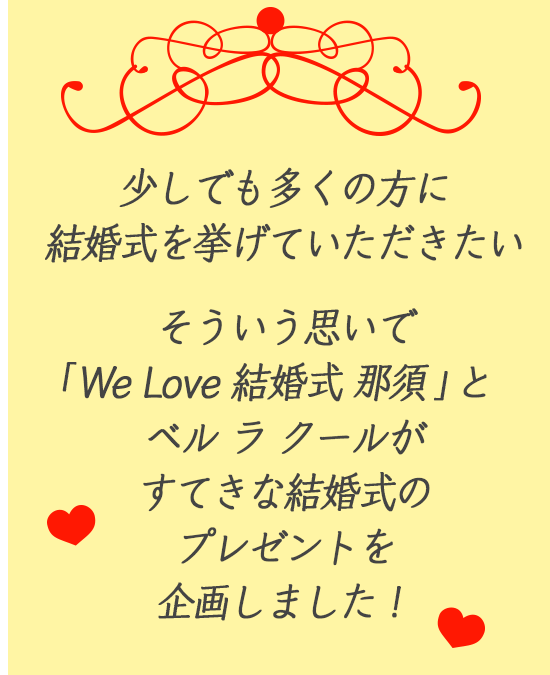 少しでも多くの方に
結婚式を挙げていただきたい
そういう思いで
「We Love 結婚式 那須」と
ベル ラ クールが
すてきな結婚式の
プレゼントを
企画しました！